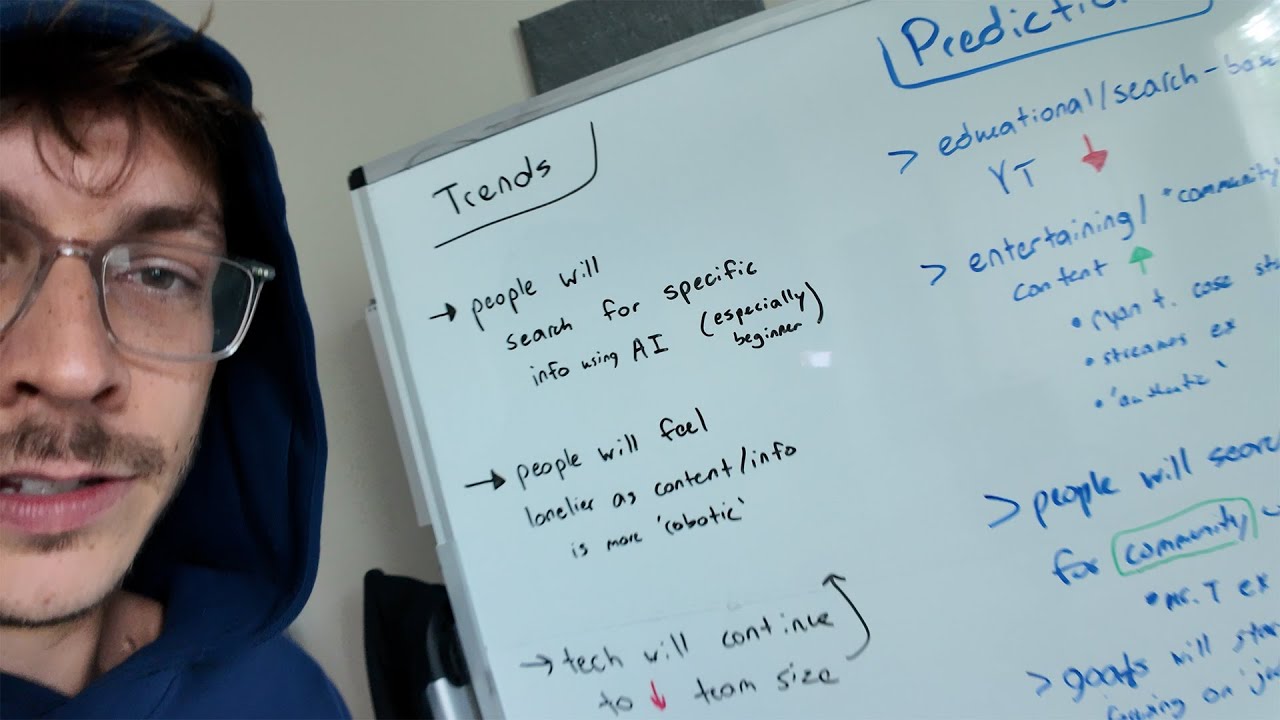 Trends
→ people will
search for specific
info using AI (especially beginner)
→ people will feel
lonelier as content/info
is more 'robotic'
→ tech will continue
to ↓ team size
Prediction
> educational/search-base
YT ↓
> entertaining/ "community
content ↑
• ryan t. case st
• streams ex
• 'authentic'
> people will search
for community
• mr. T ex
> goals will star
on